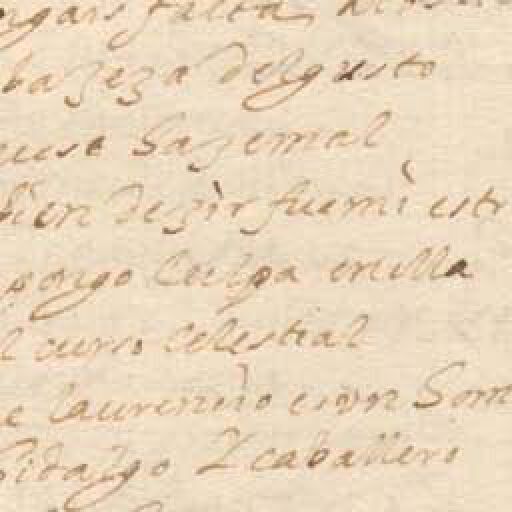 falta
bazeza del gusto
se haze mal
bien dezir fue mi estr
pongo culpa en ella
l curso celestial
e laurencio con Som
hidalgo y caballero